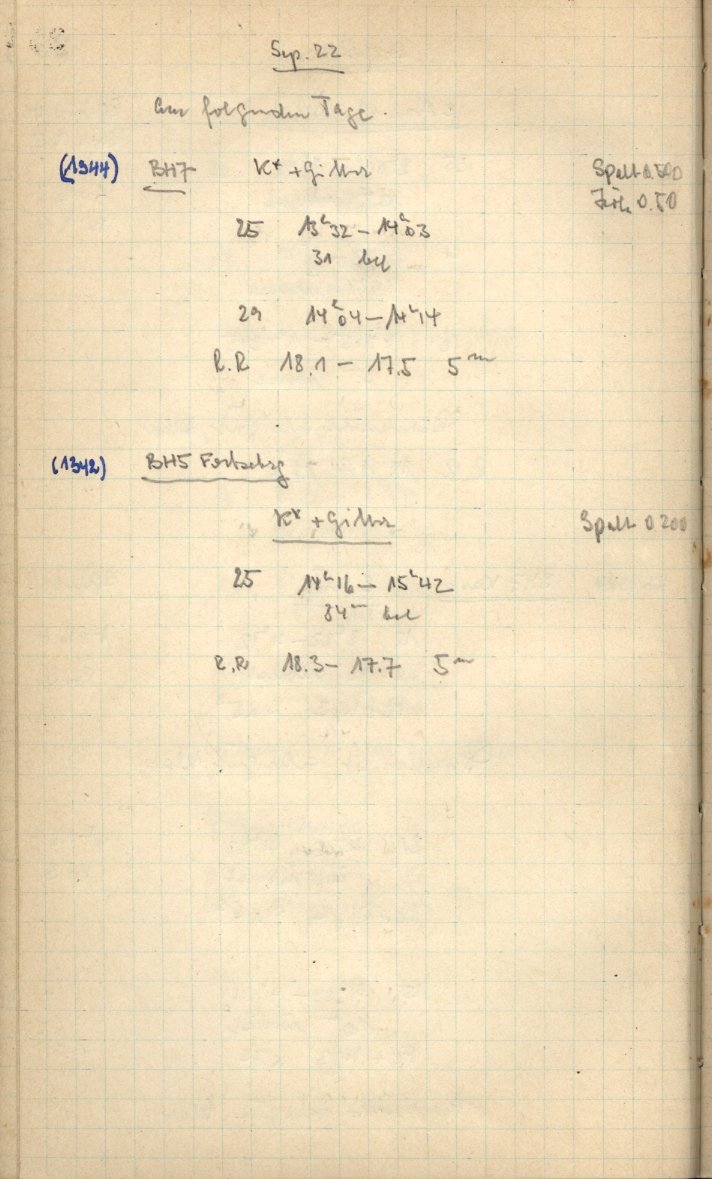 Sep. 22
Am folgenden Tage.
(1344) BH7 K* + Gitter Spalt 0.500
0.50
25 13ʰ32 – 14ʰ03
31 bel
29 14ʰ04 – 14ʰ14
R.R 18.1 – 17.5 5ᵐ
(1342) BH5 Fortsetzg
K* + Gitter Spalt 0.200
25 14ʰ16 – 15ʰ42
34ᵐ bel
R.R 18.3 – 17.7 5ᵐ